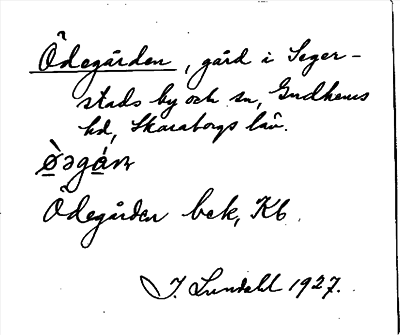 Ödegården, gård i Seger-
stads by och sn, Gudhems
hd, Skaraborgs län.
Ödegården bek, Kb.
I. Lundahl 1927.